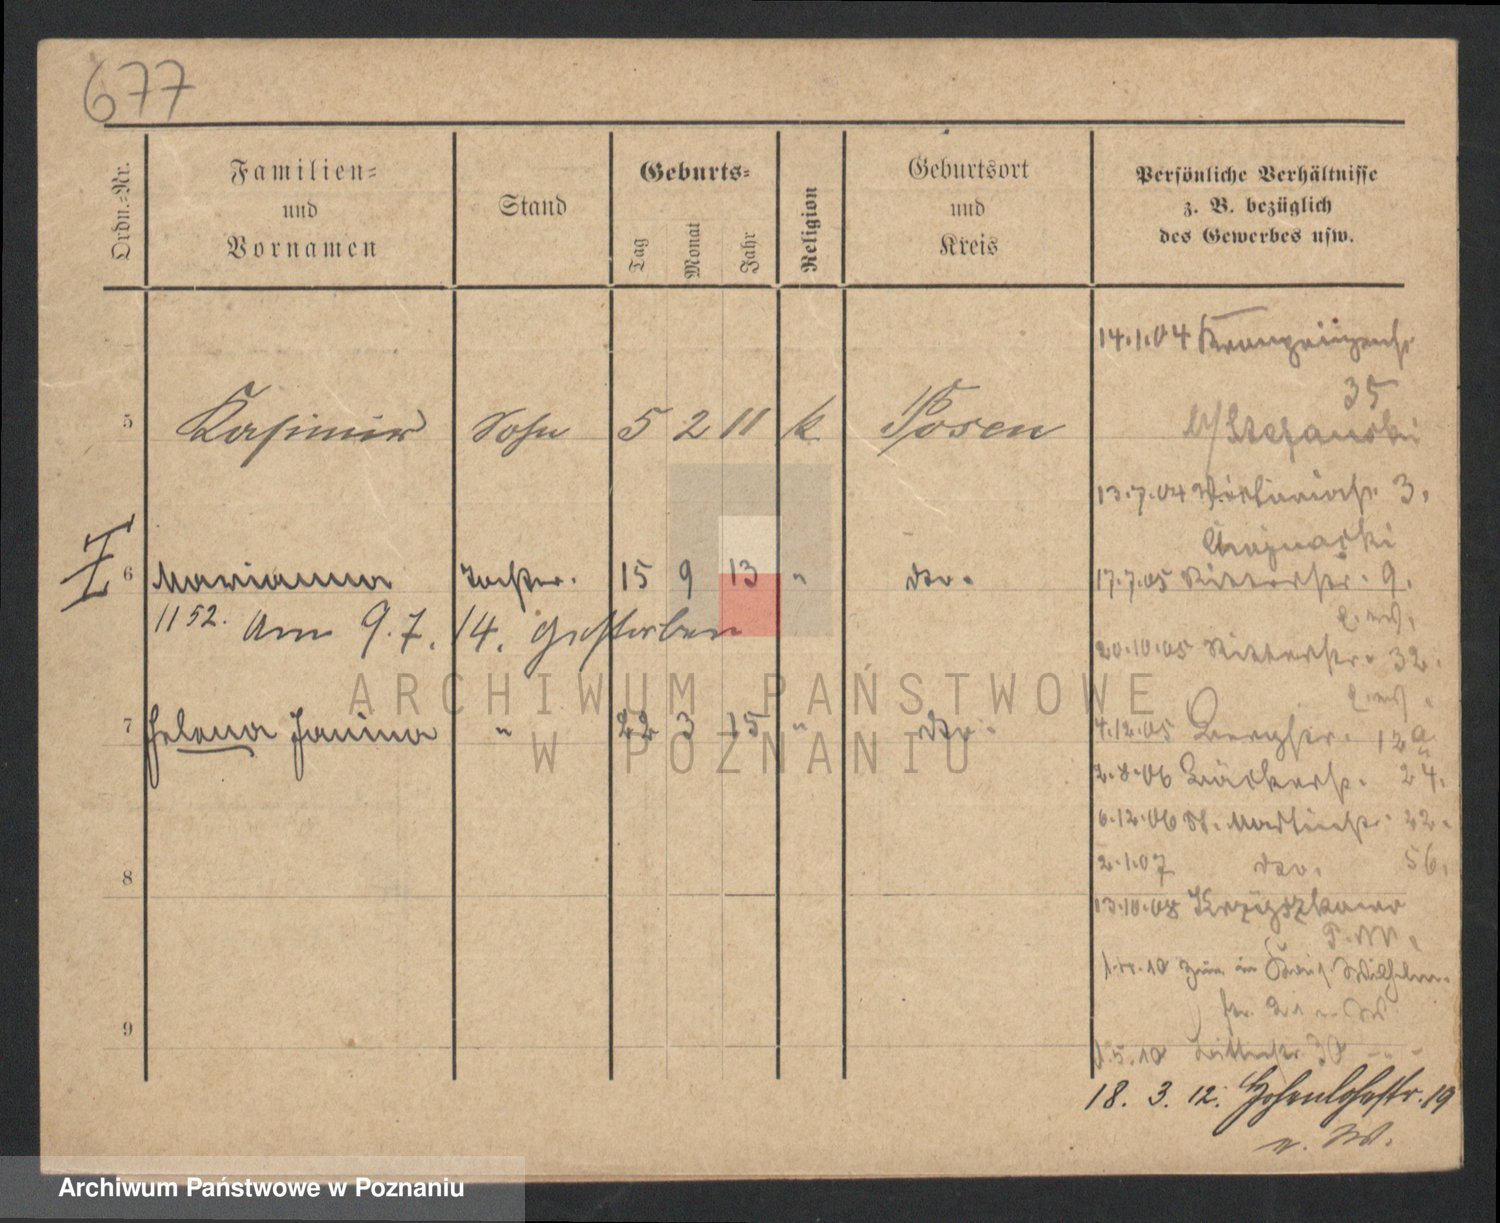 677
Ordn.-Nr.
Familien-
und
Vornamen
Stand
Geburts-
Tag
Monat
Jahr
Religion
Geburtsort
und
Kreis
Persönliche Verhältnisse
z. B. bezüglich
des Gewerbes usw.
14.1.04
35
5 Kasimir Sohn 5 2 11 k. Posen
b/ Stefanski
13.7.04 3.
6 Marianna Tochter. 15 9 13 " do.
1152. Am 9.7.14. gestorben
17.7.05 Ritterstr. 9.
20.10.05 Ritterstr. 32.
7 Helena Janina " 22 3 15 " do.
4.12.05 Bergstr. 12a
2.8.06 Bäckerstr. 24.
6.12.06 St. Martinstr. 22.
2.1.07 do. 56.
8
13.10.08
9
1.5.10
18. 3. 12. Hohenlohestr. 19
u. W.
ARCHIWUM PAŃSTWOWE
W POZNANIU
Archiwum Państwowe w Poznaniu